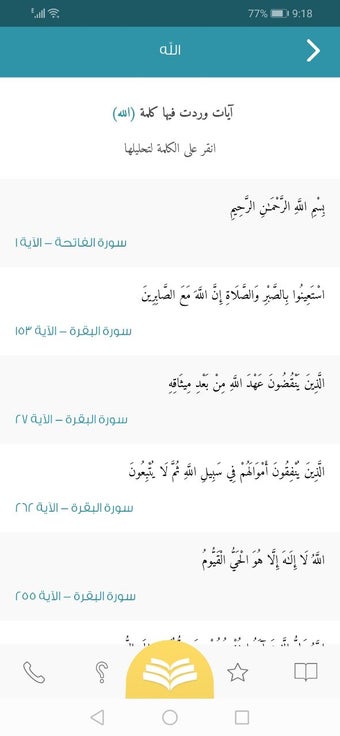 77% 9:18
الله
آيات وردت فيها كلمة (الله)
انقر على الكلمة لتحليلها
بِسْمِ اللَّهِ الرَّحْمَٰنِ الرَّحِيمِ
سورة الفاتحة – الآية ١
اسْتَعِينُوا بِالصَّبْرِ وَالصَّلَاةِ إِنَّ اللَّهَ مَعَ الصَّابِرِينَ
سورة البقرة – الآية ١٥٣
الَّذِينَ يَنْقُضُونَ عَهْدَ اللَّهِ مِنْ بَعْدِ مِيثَاقِهِ
سورة البقرة – الآية ٢٧
الَّذِينَ يُنْفِقُونَ أَمْوَالَهُمْ فِي سَبِيلِ اللَّهِ ثُمَّ لَا يُتْبِعُونَ
سورة البقرة – الآية ٢٦٢
اللَّهُ لَا إِلَٰهَ إِلَّا هُوَ الْحَيُّ الْقَيُّومُ
سورة البقرة – الآية ٢٥٥